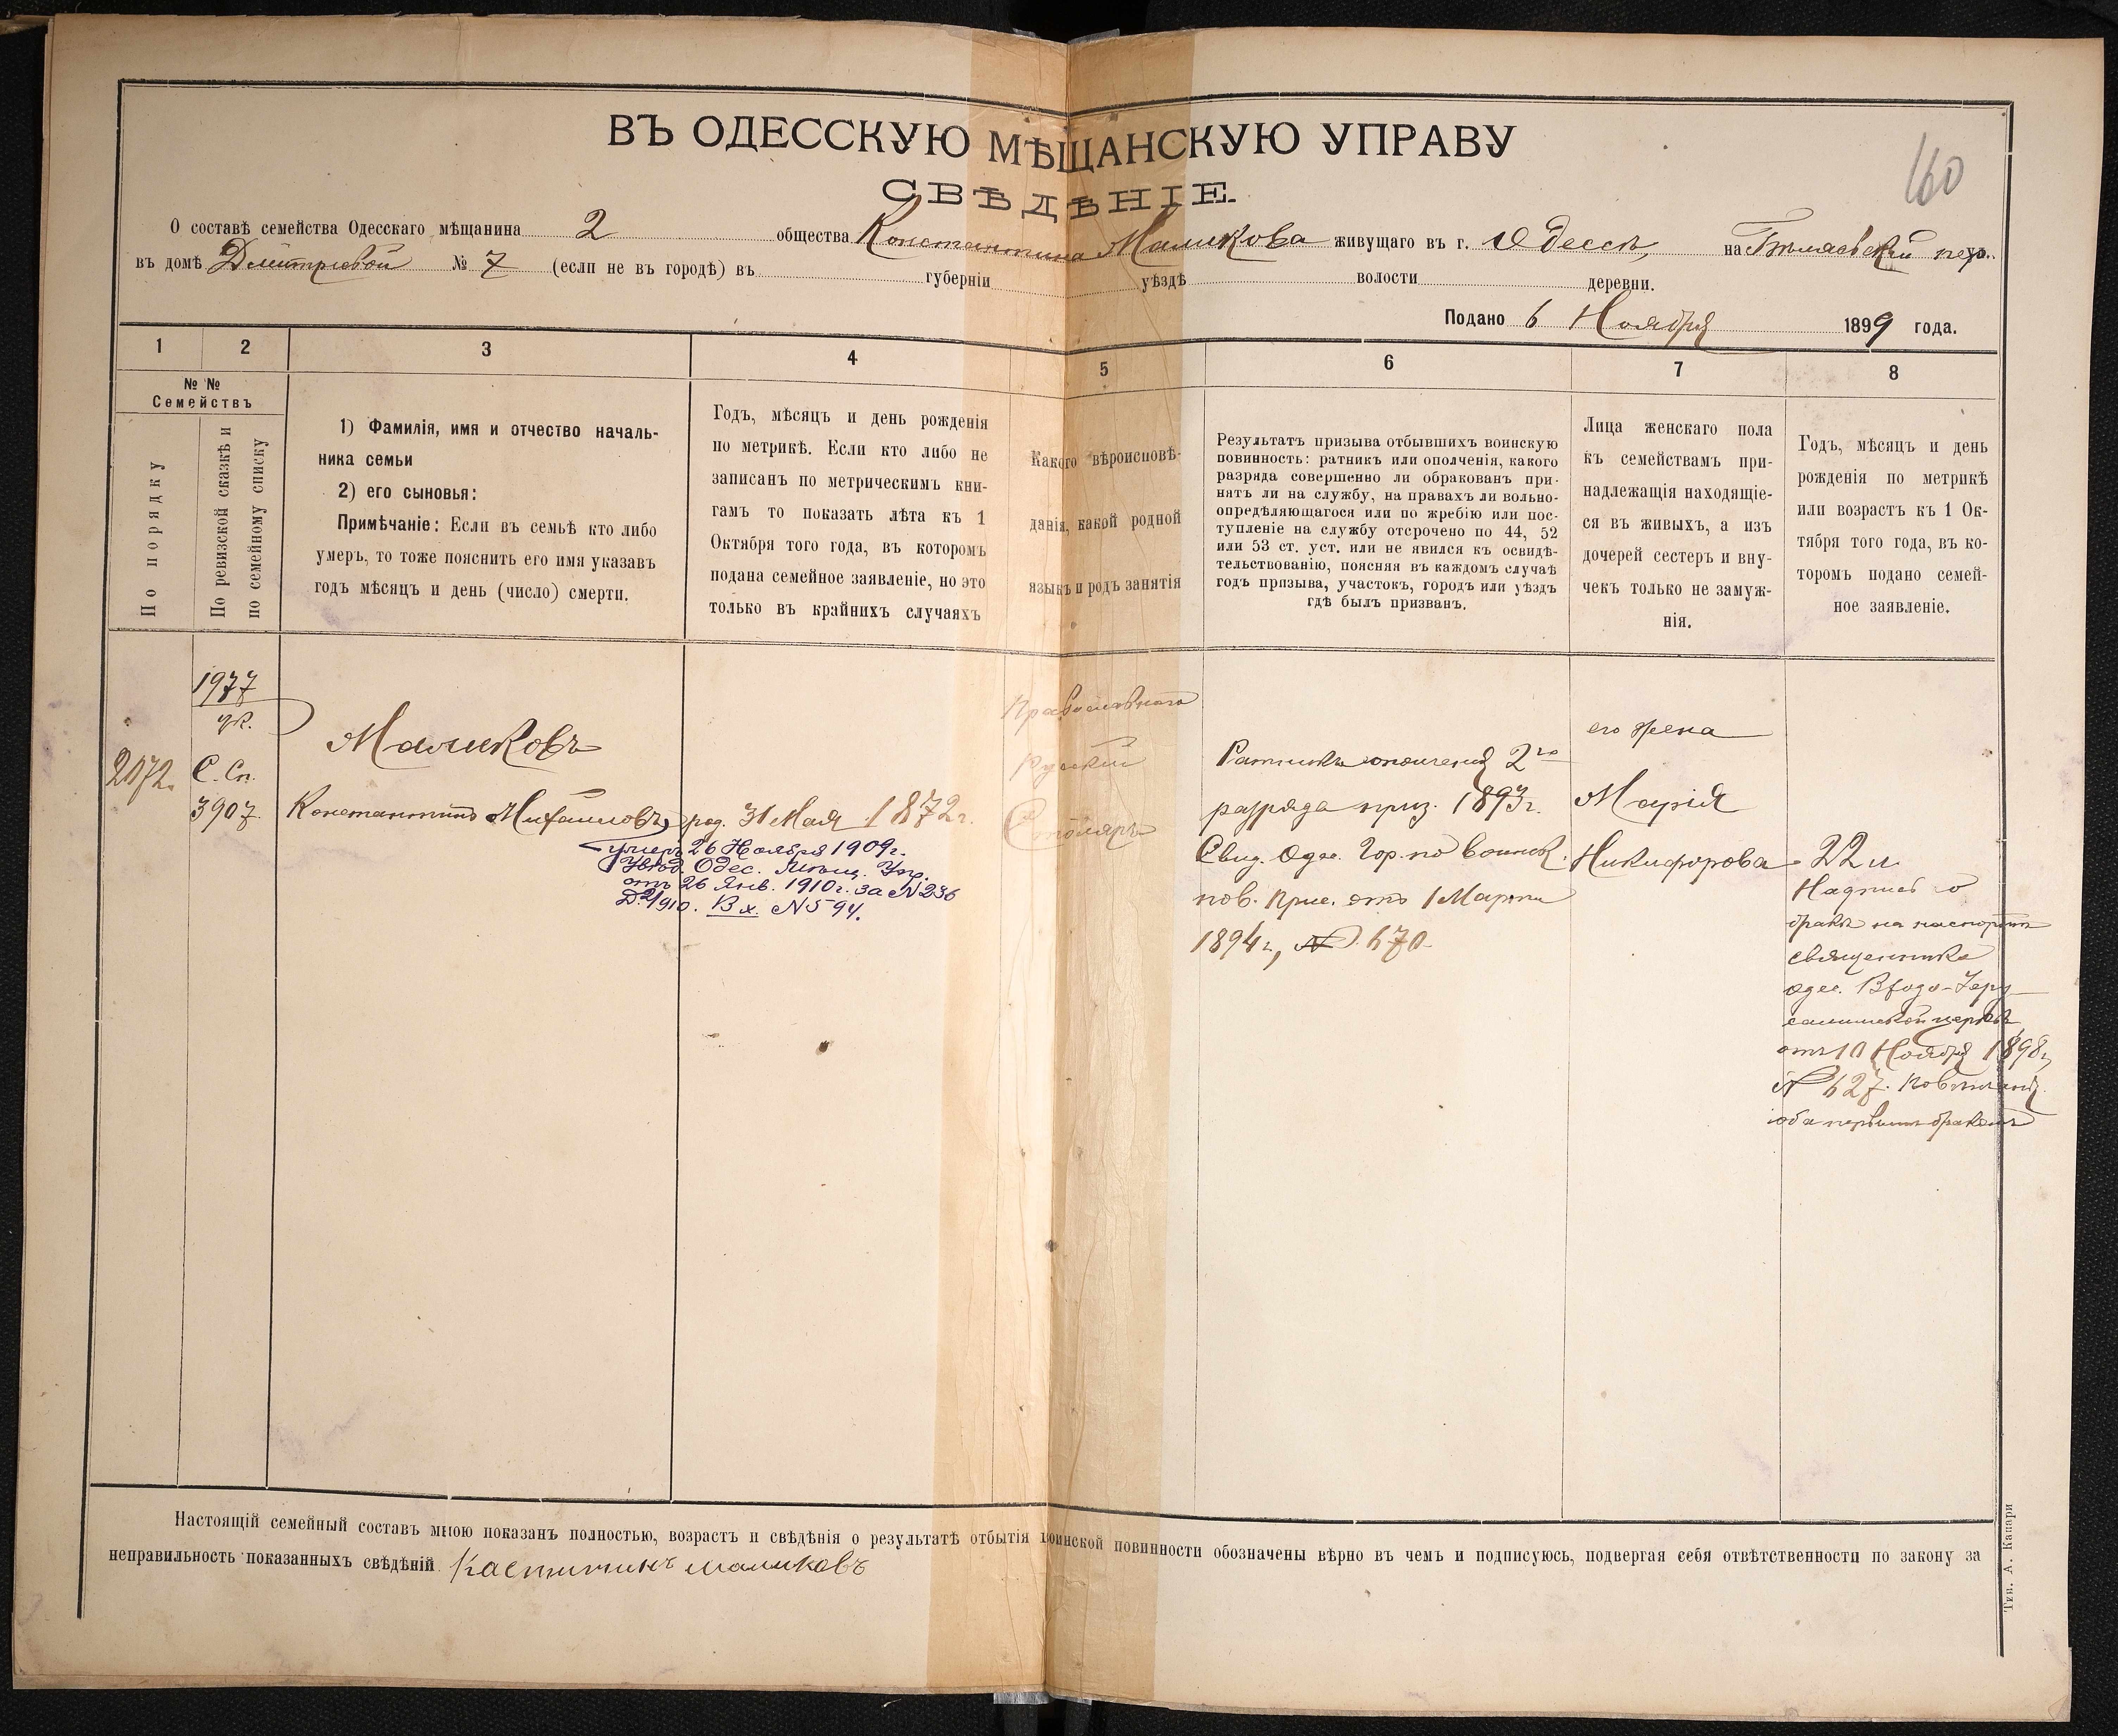 160
ВЪ ОДЕССКУЮ МѢЩАНСКУЮ УПРАВУ
СВѢДѢНІЕ.
О составѣ семейства Одесскаго мѣщанина 2 общества Константина Маликова живущаго въ г. Одессѣ, на
въ домѣ Дмитріевой № 7 (если не въ городѣ) въ губерніи уѣздѣ волости деревни.
Подано 6 Ноября 1899 года.
1 2 3 4 5 6 7 8
№ №
Семействъ
По порядку
По ревизской сказкѣ и
по семейному списку
1) Фамилія, имя и отчество началь-
ника семьи
2) его сыновья:
Примѣчаніе: Если въ семьѣ кто либо
умеръ, то тоже пояснить его имя указавъ
годъ мѣсяцъ и день (число) смерти.
Годъ, мѣсяцъ и день рожденія
по метрикѣ. Если кто либо не
записанъ по метрическимъ кни-
гамъ то показать лѣта къ 1
Октября того года, въ которомъ
подана семейное заявленіе, но это
только въ крайнихъ случаяхъ
Какого вѣроисповѣ-
данія, какой родной
языкъ и родъ занятія
Результатъ призыва отбывшихъ воинскую
повинность: ратникъ или ополченія, какого
разряда совершенно ли обракованъ при-
нятъ ли на службу, на правахъ ли вольно-
опредѣляющагося или по жребію или пос-
тупленіе на службу отсрочено по 44, 52
или 53 ст. уст. или не явился къ освидѣ-
тельствованію, поясняя въ каждомъ случаѣ
годъ призыва, участокъ, городъ или уѣздъ
гдѣ былъ призванъ.
Лица женскаго пола
къ семействамъ при-
надлежащія находящіе-
ся въ живыхъ, а изъ
дочерей сестеръ и вну-
чекъ только не замуж-
нія.
Годъ, мѣсяцъ и день
рожденія по метрикѣ
или возрастъ къ 1 Ок-
тября того года, въ ко-
торомъ подано семей-
ное заявленіе.
2072.
1977
С. Сп.
3907.
Маликовъ
Константинъ Михаиловъ,
род. 31 Мая 1872 г.
умеръ 26 Ноября 1909 г.
Увѣд. Одес. Мѣщ. Упр.
отъ 26 Янв. 1910 г. за № 236
1910. Вх. № 594.
Православнаго
Русскій
Столяръ
Ратникъ ополченія 2го
разряда приз. 1893 г.
Свид. Одес. Гор. по воинск.
пов. Прис. отъ 1 Марта
1894 г., № 670
его жена
Марія
Никифорова
22 л.
Надпись о
бракѣ на паспортѣ
священника
Одес. Входо-Іеру-
салимской церкви
отъ 10 Ноября 1898 г,
№ 627. повѣнчаны
оба первымъ бракомъ
Настоящій семейный составъ мною показанъ полностью, возрастъ и свѣдѣнія о результатѣ отбытія воинской повинности обозначены вѣрно въ чемъ и подписуюсь, подвергая себя отвѣтственности по закону за
неправильность показанныхъ свѣдѣній маликовъ
Тип. А. Капари